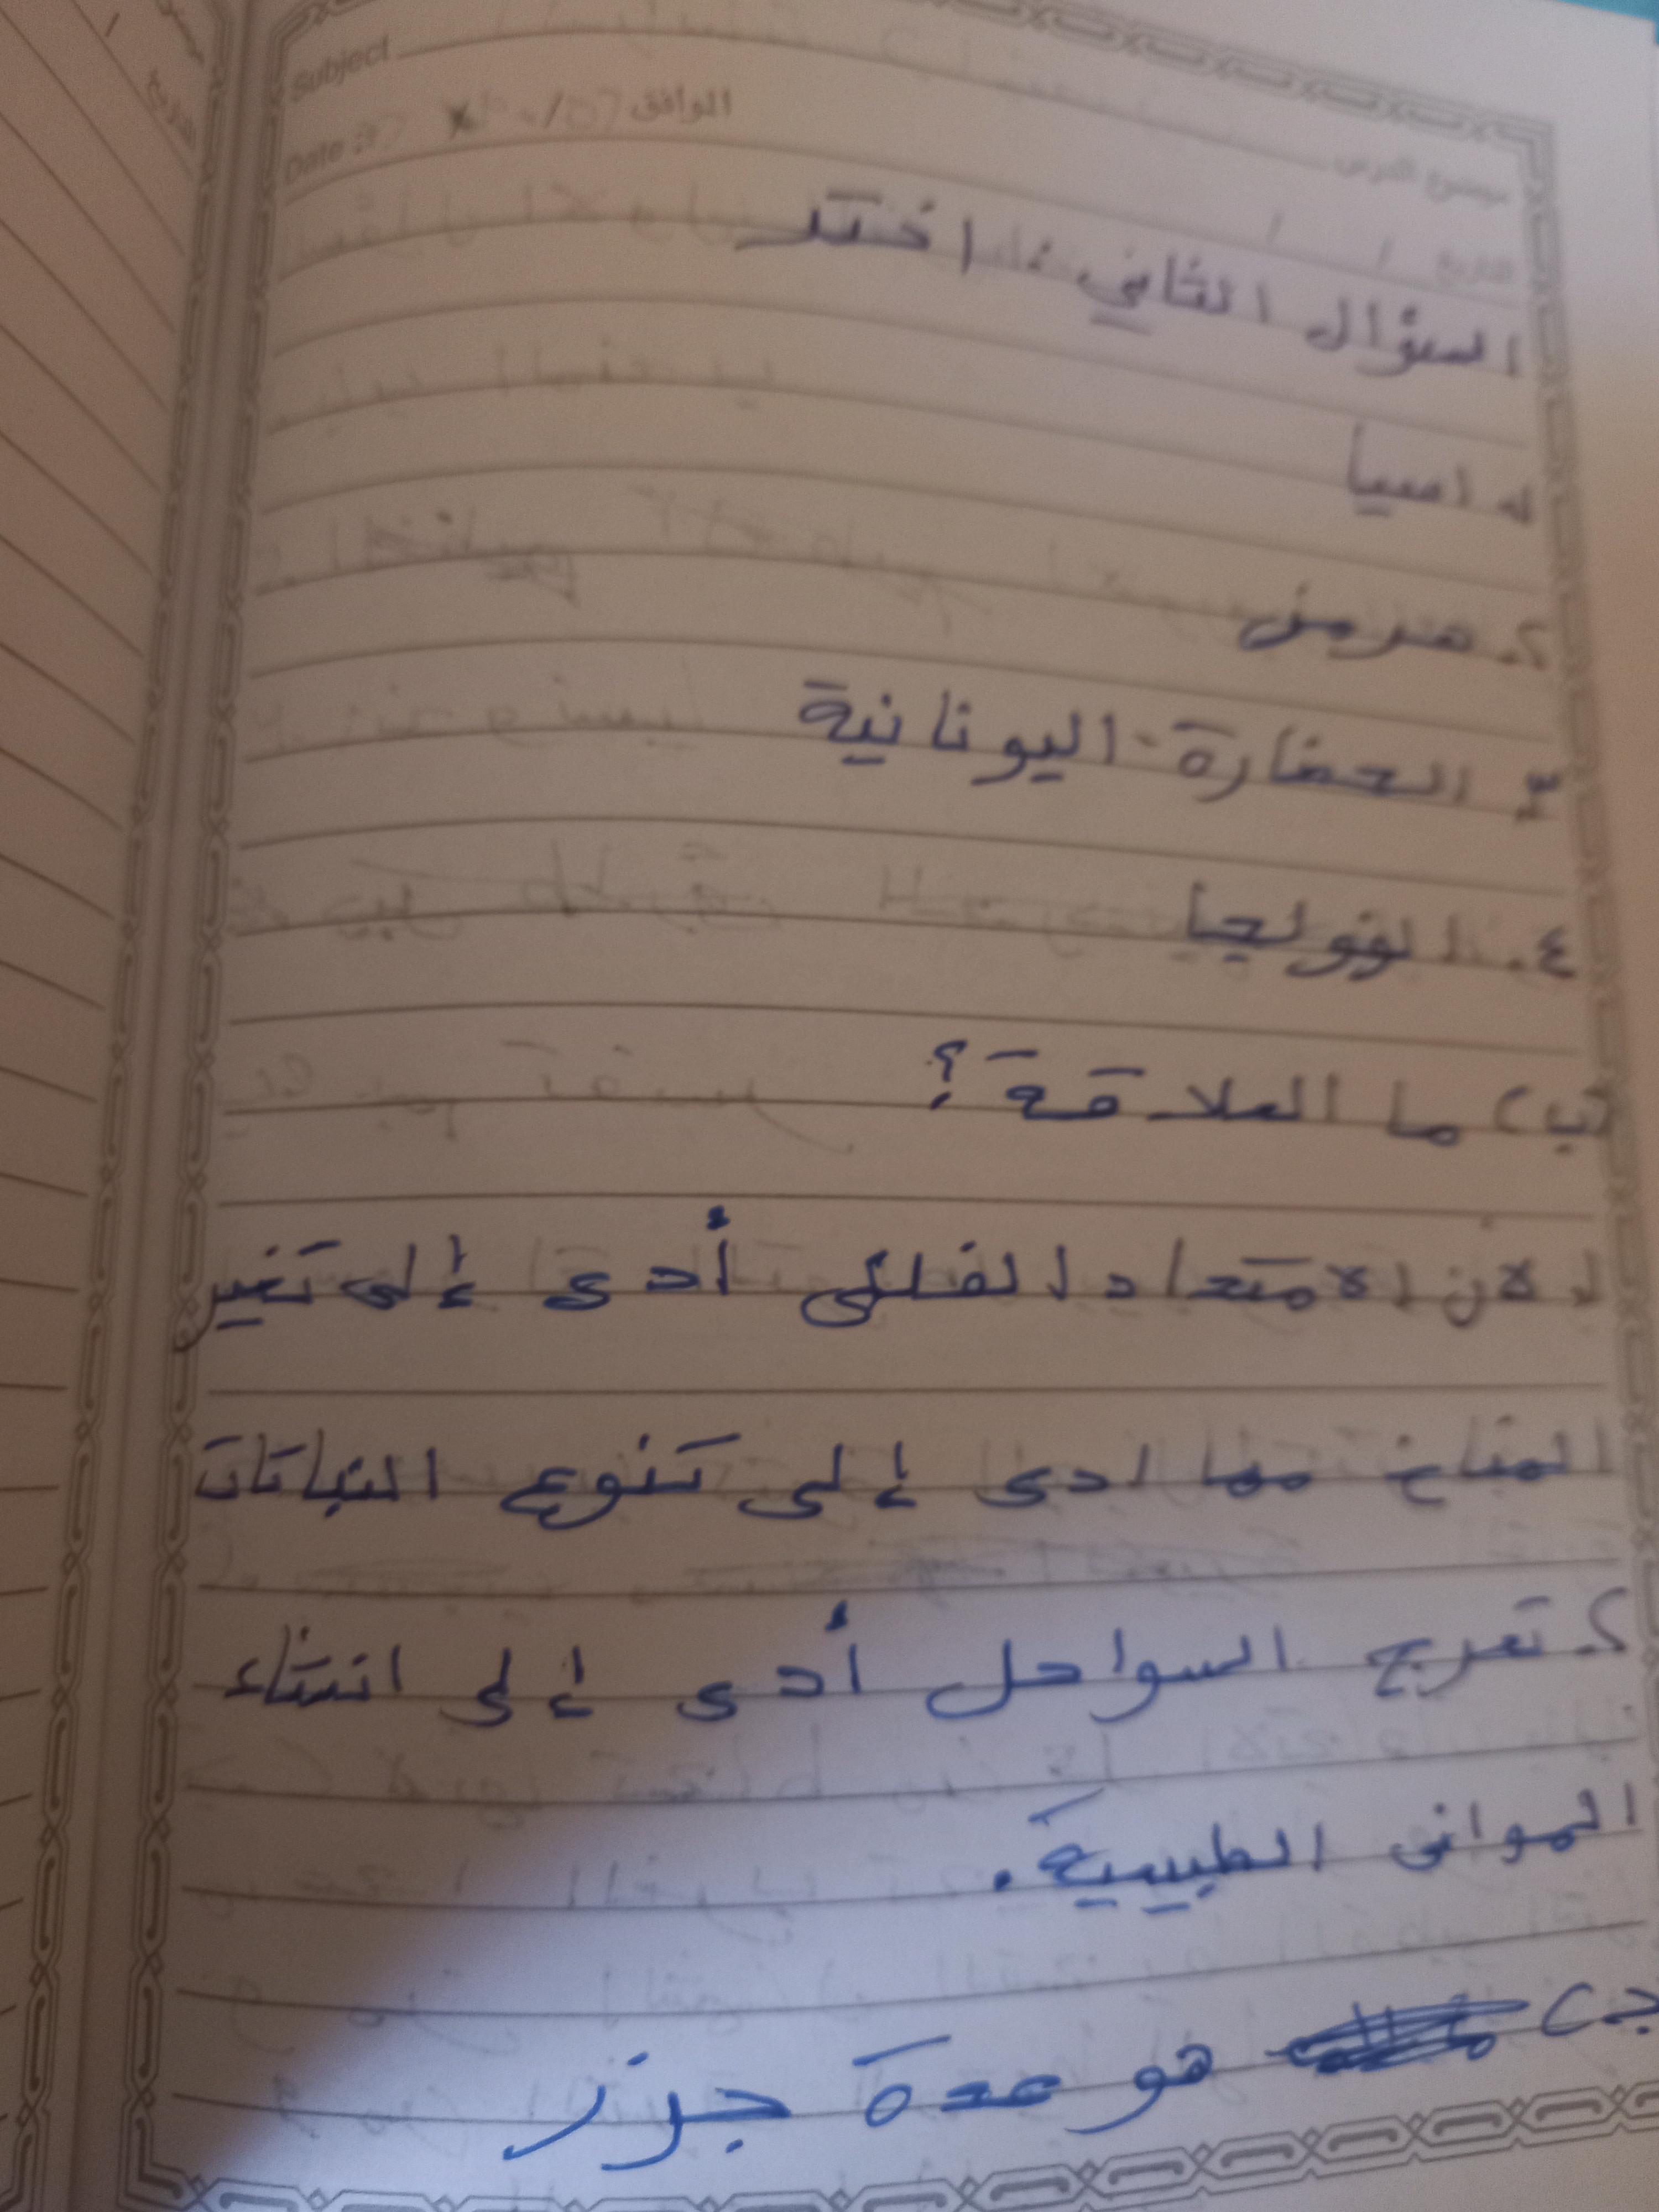 Subject
موضوع الدرس
Date : الموافق
التاريخ / /
السؤال الثاني : اختر
١. اسيا
٢. هرمز
٣. الحضارة اليونانية
٤. الفولجا
(ب) ما العلاقة؟
١. لان الامتداد الفلكي أدى إلى تغير
المناخ مما ادى إلى تنوع النباتات
٢. تعرج السواحل أدى إلى انشاء
المواني الطبيية.
ج) هو عدة جزر